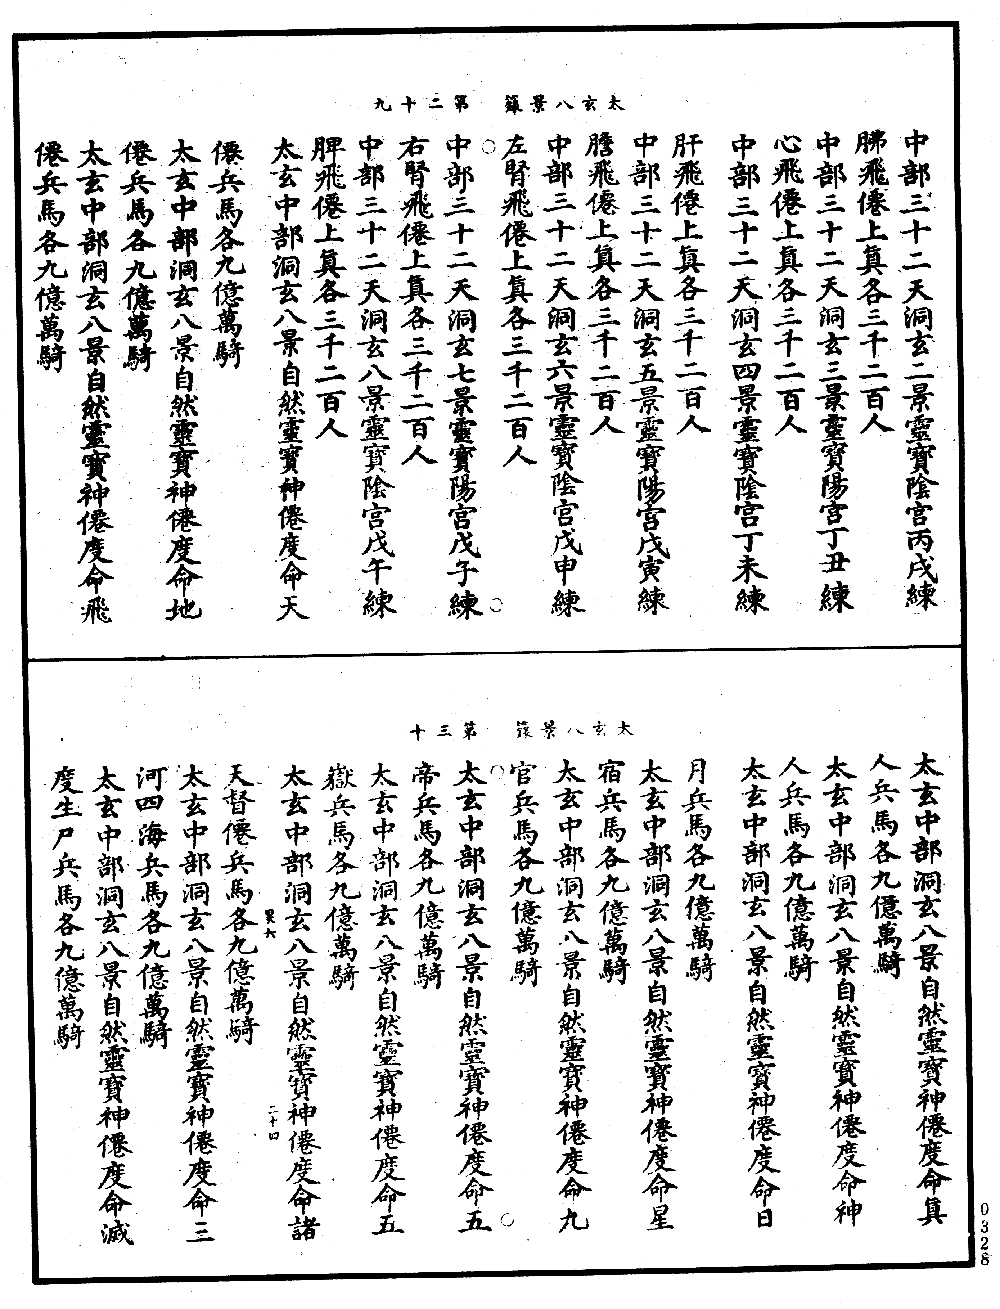 太玄八景籙　第二十九
中部三十二天洞玄二景靈寶陰宮丙戌練
胇飛僊上真各三千二百人
中部三十二天洞玄三景靈寶陽宮丁丑練
心飛僊上真各三千二百人
中部三十二天洞玄四景靈寶陰宮丁未練
肝飛僊上真各三千二百人
中部三十二天洞玄五景靈寶陽宮戊寅練
膽飛僊上真各三千二百人
中部三十二天洞玄六景靈寶陰宮戊申練
左腎飛僊上真各三千二百人
中部三十二天洞玄七景靈寶陽宮戊子練
右腎飛僊上真各三千二百人
中部三十二天洞玄八景靈寶陰宮戊午練
脾飛僊上真各三千二百人
太玄中部洞玄八景自然靈寶神僊度命天
僊兵馬各九億萬騎
太玄中部洞玄八景自然靈寶神僊度命地
僊兵馬各九億萬騎
太玄中部洞玄八景自然靈寶神僊度命飛
僊兵馬各九億萬騎
太玄八景籙　第三十
太玄中部洞玄八景自然靈寶神僊度命真
人兵馬各九億萬騎
太玄中部洞玄八景自然靈寶神僊度命神
人兵馬各九億萬騎
太玄中部洞玄八景自然靈寶神僊度命日
月兵馬各九億萬騎
太玄中部洞玄八景自然靈寶神僊度命星
宿兵馬各九億萬騎
太玄中部洞玄八景自然靈寶神僊度命九
官兵馬各九億萬騎
太玄中部洞玄八景自然靈寶神僊度命五
帝兵馬各九億萬騎
太玄中部洞玄八景自然靈寶神僊度命五
嶽兵馬各九億萬騎
太玄中部洞玄八景自然靈寶神僊度命諸
二十四
天督僊兵馬各九億萬騎
太玄中部洞玄八景自然靈寶神僊度命三
河四海兵馬各九億萬騎
太玄中部洞玄八景自然靈寶神僊度命滅
度生尸兵馬各九億萬騎
0328